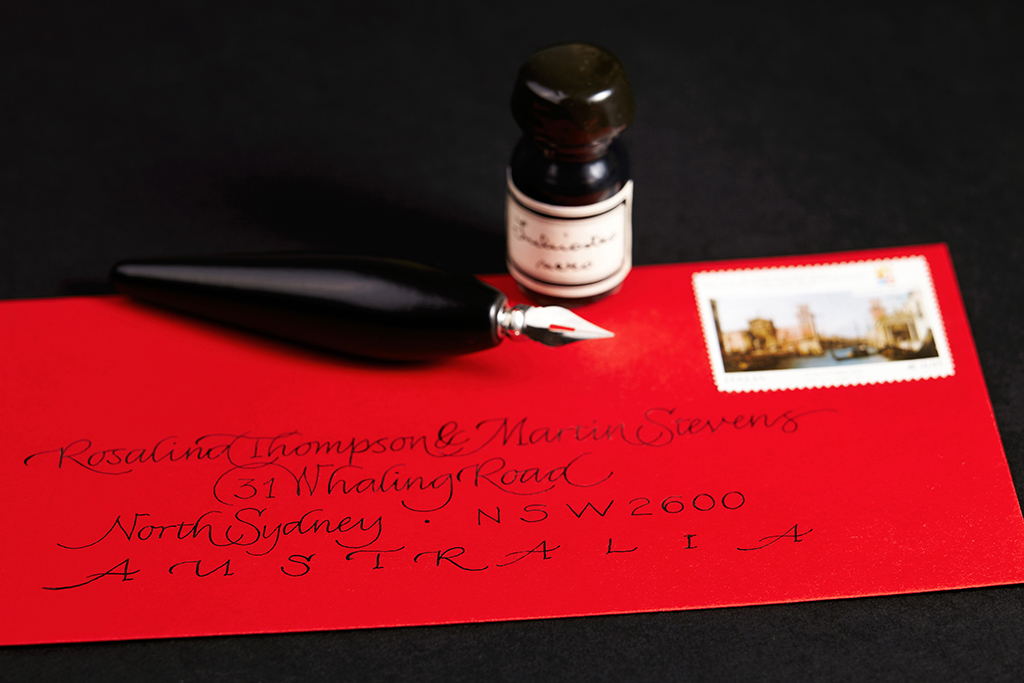 Rosalind Thompson & Martin Stevens
31 Whaling Road
North Sydney · NSW 2600
AUSTRALIA